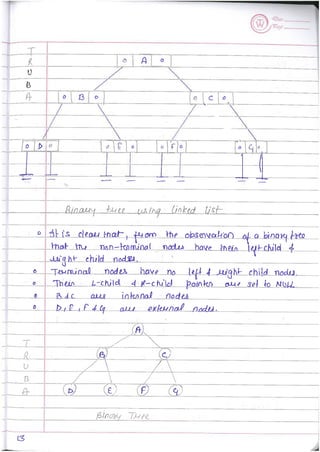 T
R
U
B
A
0 A 0
0 B 0
0 C 0
0 D 0
0 E 0
0 F 0
0 G 0
Binary tree using linked list
It is clear that, from the observation of a binary tree
that the non-terminal nodes have their left child &
right child nodes.
Terminal nodes have no left & right child nodes.
Their L-child & R-child pointer are set to NULL
B & C are internal nodes
D, E, F & G are external nodes.
A
B
C
D
E
F
G
T
R
U
B
A
Binary Tree
13